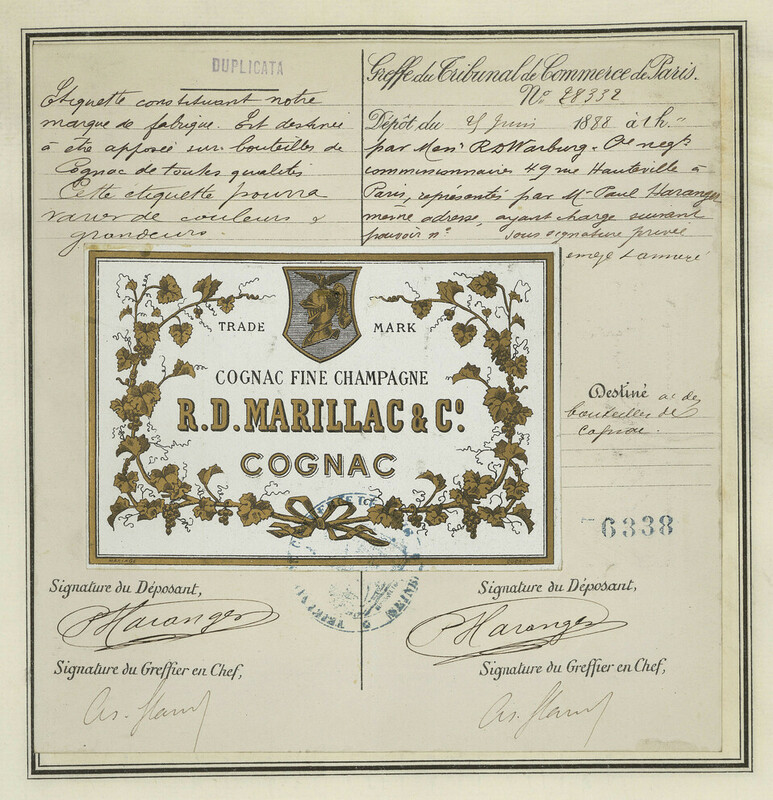 DUPLICATA
Etiquette constituant notre
marque de fabrique. Est destinée
à être apposée sur bouteilles de
Cognac de toutes qualités
Cette étiquette pourra
varier de couleurs &
grandeurs.
Greffe du Tribunal de Commerce de Paris.
No 28332
Dépôt du Juin 1888 à 1 h.
par Mess RD Warburg & Cie negts
commissionnaires 49 rue Hauteville à
Paris, représentés par Mr Paul Haranger
même adresse, ayant charge suivant
pouvoir no sous signature privée
annexé
TRADE MARK
COGNAC FINE CHAMPAGNE
R.D. MARILLAC & Co.
COGNAC
Destiné a des
bouteilles de
cognac.
6338
SEINE
Signature du Déposant,
PHaranger
Signature du Greffier en Chef,
Signature du Déposant,
PHaranger
Signature du Greffier en Chef,